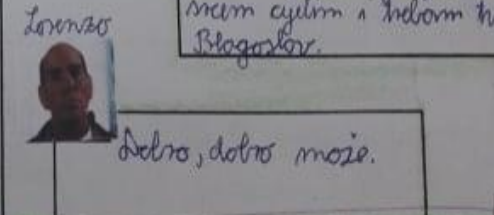 Lorenzo
srcem cyelim i trebam
Blagoslov.
Dobro, dobro može.